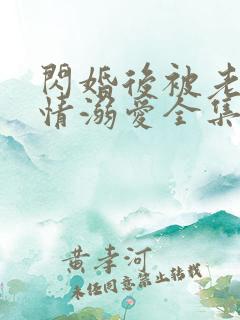 閃婚後被老
情溺愛全集
黄孝河
未经同意禁止转载